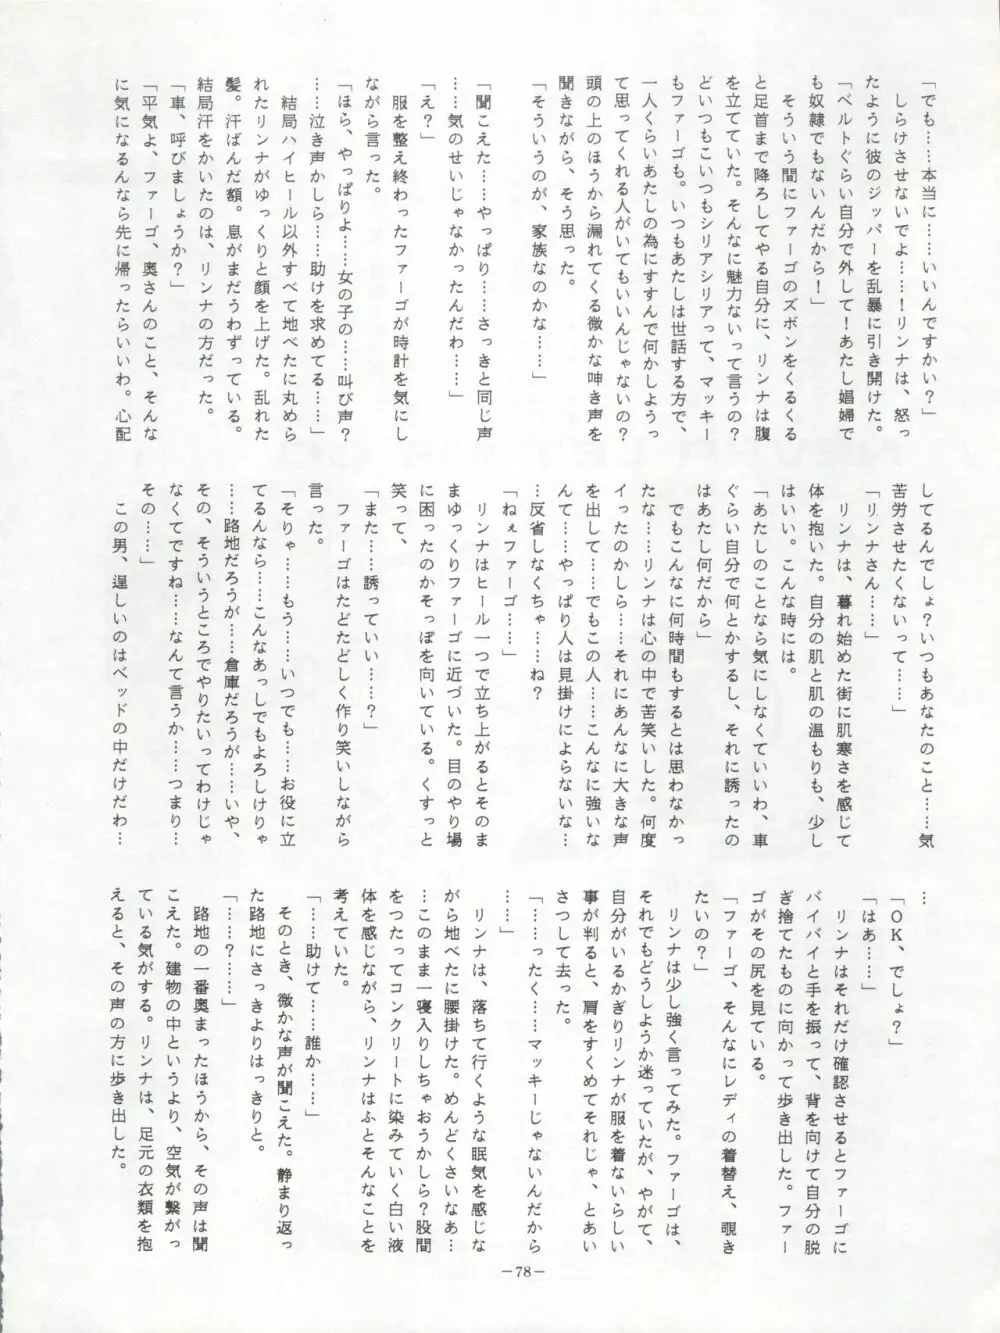 「でも……本当に……いいんですかい？」
　しらけさせないでよ……！リンナは、怒っ
たように彼のジッパーを乱暴に引き開けた。
「ベルトぐらい自分で外して！あたし娼婦で
も奴隷でもないんだから！」
　そういう間にファーゴのズボンをくるくる
と足首まで降ろしてやる自分に、リンナは腹
を立てていた。そんなに魅力ないって言うの？
どいつもこいつもシリアシリアって、マッキー
もファーゴも。いつもあたしは世話する方で、
一人くらいあたしの為にすすんで何かしようっ
て思ってくれる人がいてもいいんじゃないの？
頭の上のほうから漏れてくる微かな呻き声を
聞きながら、そう思った。
「そういうのが、家族なのかな……」
「聞こえた……やっぱり……さっきと同じ声
……気のせいじゃなかったんだわ……」
「え？」
　服を整え終わったファーゴが時計を気にし
ながら言った。
「ほら、やっぱりよ……女の子の……叫び声？
……泣き声かしら……助けを求めてる……」
　結局ハイヒール以外すべて地べたに丸めら
れたリンナがゆっくりと顔を上げた。乱れた
髪。汗ばんだ額。息がまだうわずっている。
結局汗をかいたのは、リンナの方だった。
「車、呼びましょうか？」
「平気よ、ファーゴ、奥さんのこと、そんな
に気になるんなら先に帰ったらいいわ。心配
してるんでしょ？いつもあなたのこと……気
苦労させたくないって……」
「リンナさん……」
　リンナは、暮れ始めた街に肌寒さを感じて
体を抱いた。自分の肌と肌の温もりも、少し
はいい。こんな時には。
「あたしのことなら気にしなくていいわ、車
ぐらい自分で何とかするし、それに誘ったの
はあたし何だから」
　でもこんなに何時間もするとは思わなかっ
たな……リンナは心の中で苦笑いした。何度
イったのかしら……それにあんなに大きな声
を出して……でもこの人……こんなに強いな
んて……やっぱり人は見掛けによらないな…
…反省しなくちゃ……ね？
「ねぇファーゴ……」
　リンナはヒール一つで立ち上がるとそのま
まゆっくりファーゴに近づいた。目のやり場
に困ったのかそっぽを向いている。くすっと
笑って、
「また……誘っていい……？」
　ファーゴはたどたどしく作り笑いしながら
言った。
「そりゃ……もう……いつでも……お役に立
てるんなら……こんなあっしでもよろしけりゃ
……路地だろうが……倉庫だろうが……いや、
その、そういうところでやりたいってわけじゃ
なくてですね……なんて言うか……つまり…
その……」
　この男、逞しいのはベッドの中だけだわ…
…
「ＯＫ、でしょ？」
「はあ……」
　リンナはそれだけ確認させるとファーゴに
バイバイと手を振って、背を向けて自分の脱
ぎ捨てたものに向かって歩き出した。ファー
ゴがその尻を見ている。
「ファーゴ、そんなにレディの着替え、覗き
たいの？」
　リンナは少し強く言ってみた。ファーゴは、
それでもどうしようか迷っていたが、やがて、
自分がいるかぎりリンナが服を着ないらしい
事が判ると、肩をすくめてそれじゃ、とあい
さつして去った。
「……ったく……マッキーじゃないんだから
……」
　リンナは、落ちて行くような眠気を感じな
がら地べたに腰掛けた。めんどくさいなあ…
…このまま一寝入りしちゃおうかしら？股間
をつたってコンクリートに染みていく白い液
体を感じながら、リンナはふとそんなことを
考えていた。
「……助けて……誰か……」
　そのとき、微かな声が聞こえた。静まり返っ
た路地にさっきよりはっきりと。
「……？……」
　路地の一番奥まったほうから、その声は聞
こえた。建物の中というより、空気が繋がっ
ている気がする。リンナは、足元の衣類を抱
えると、その声の方に歩き出した。
－78－